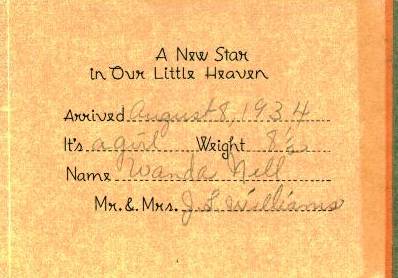 A New Star
in Our Little Heaven
Arrived August 8, 1934
It's a girl Weight 8½
Name Wanda Nell
Mr. & Mrs. J. L. Williams